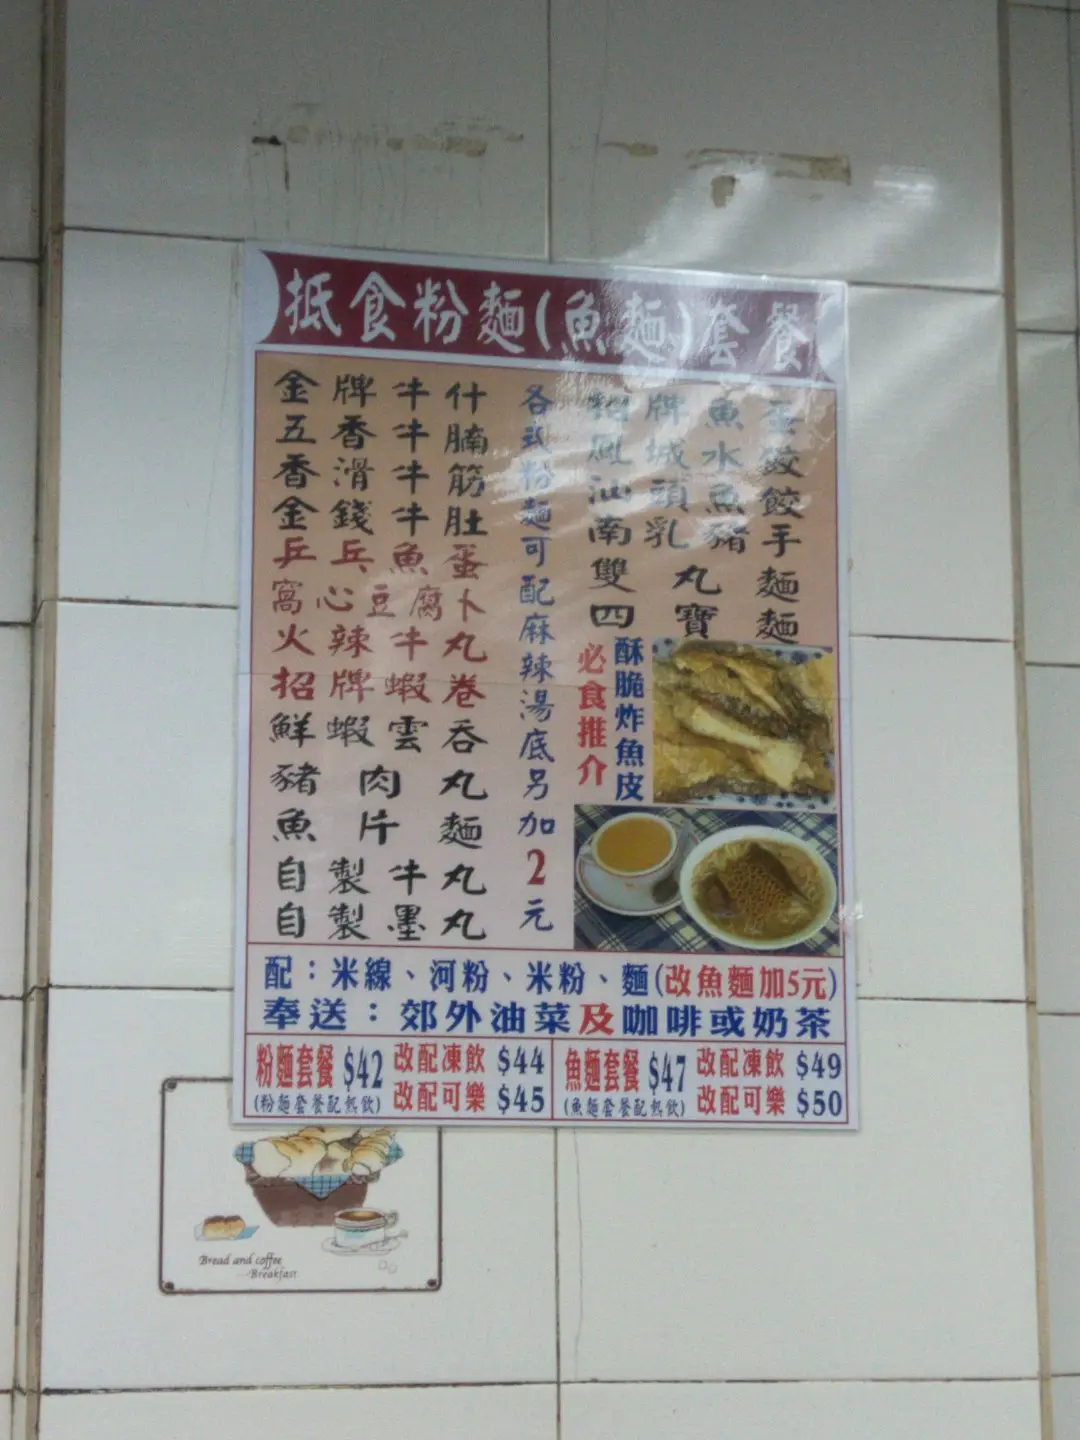 抵食粉麵(魚麵)套餐
金牌牛什
五香牛腩
香滑牛筋
金錢牛肚
乒乓魚蛋
窩心豆腐卜
火辣牛丸
招牌蝦卷
鮮蝦雲吞
豬肉丸
魚片麵
自製牛丸
自製墨丸
各式粉麵可配麻辣湯底另加2元
招牌魚蛋
鳳城水餃
汕頭魚餃
南乳豬手
雙丸麵
四寶麵
酥脆炸魚皮
必食推介
配：米線、河粉、米粉、麵(改魚麵加5元)
奉送：郊外油菜及咖啡或奶茶
粉麵套餐 $42 改配凍飲 $44
(粉麵套餐配熱飲) 改配可樂 $45
魚麵套餐 $47 改配凍飲 $49
(魚麵套餐配熱飲) 改配可樂 $50
Bread and coffee
Breakfast